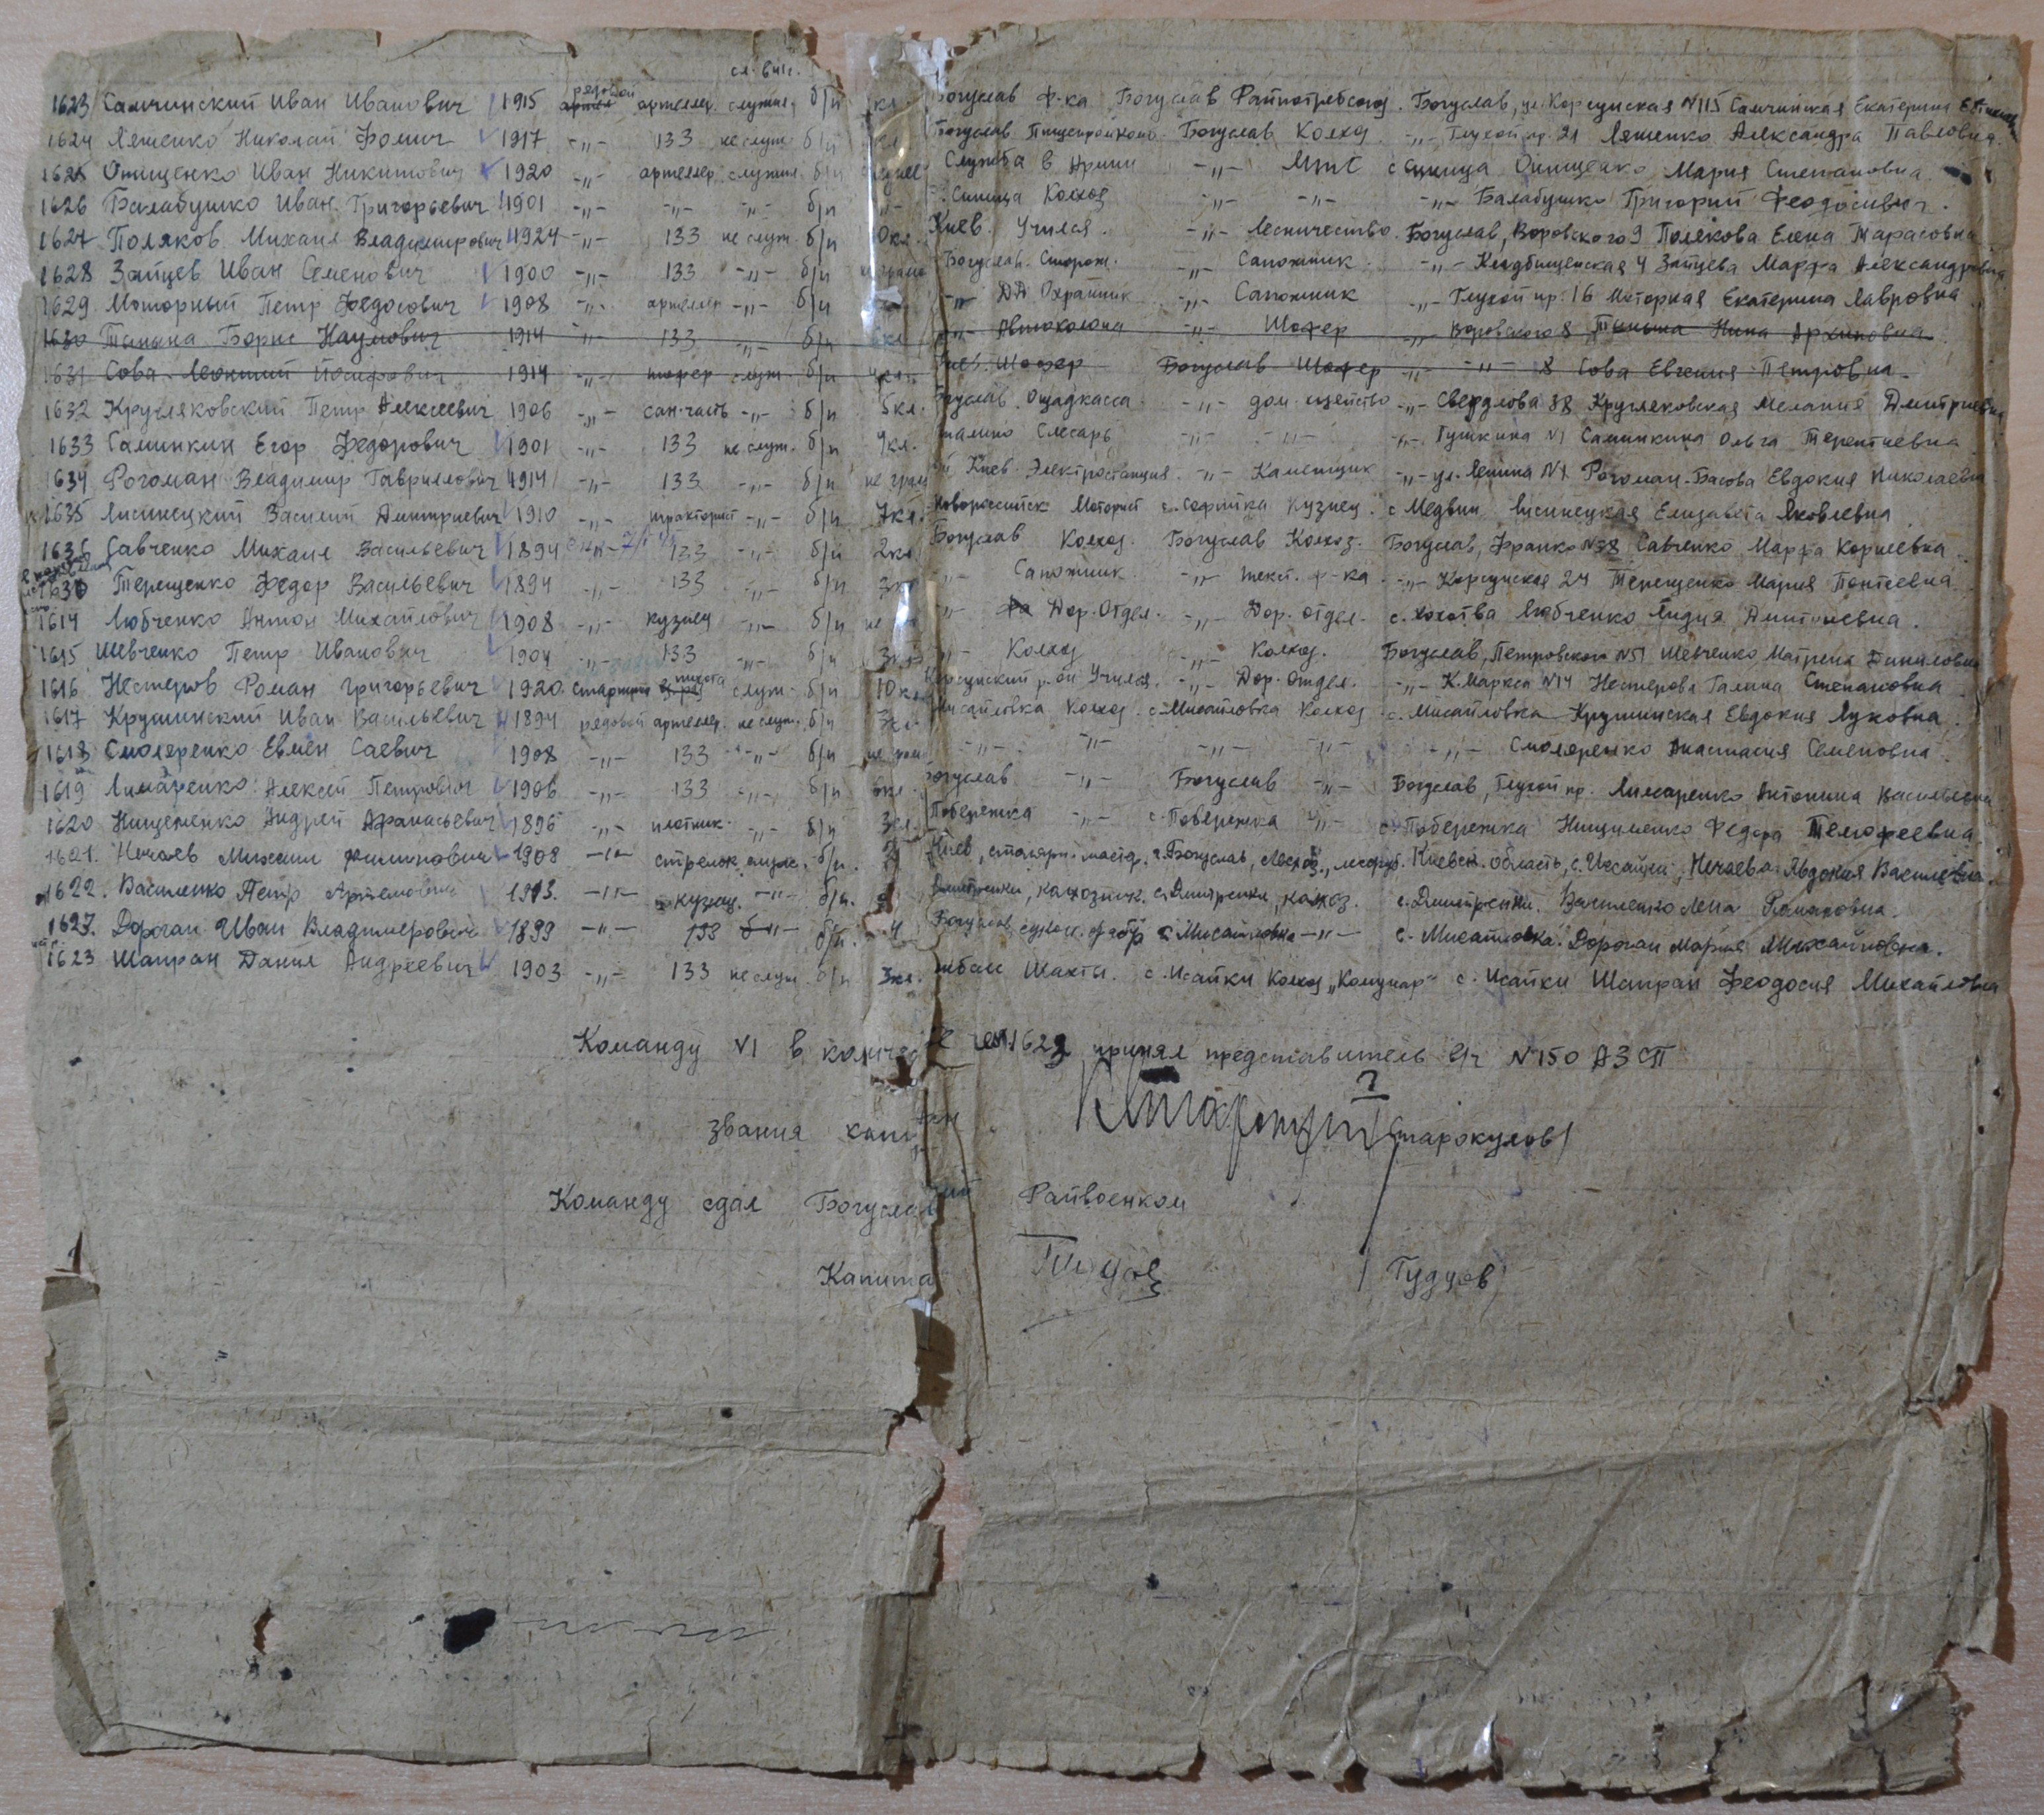 сл. в 41 г.
1623 Самчинский Иван Иванович 1915 рядовой артиллер. служил. б/п кл. Богуслав ф-ка Богуслав Райпотребсоюз. Богуслав, ул. Корсунская N115 Самчинская Екатерина
1624 Ляшенко Николай Фомич 1917 -"- 133 не служ. б/п кл. Богуслав Богуслав Колхоз -"- Глухой пр. 21 Ляшенко Александра Павловна
1625 Онищенко Иван Никитович 1920 -"- артеллер. служил. б/п Служба в Армии -"- МТС с Синица Онищенко Мария Степановна
1626 Балабушко Иван Григорьевич 1901 -"- -"- -"- б/п -"- Синица Колхоз -"- -"- -"- Балабушко Григорий Феодосиевич.
1627 Поляков Михаил Владимирович 1924 -"- 133 не служ. б/п 10 кл. Киев. Учился. -"- Лесничество. Богуслав, Воровского 9 Полякова Елена Тарасовна
1628 Зайцев Иван Семенович 1900 -"- 133 -"- б/п Богуслав. Сторож. -"- Сапожник -"- Кладбищенская 4 Зайцева Марфа Александровна
1629. Моторный Петр Федосович 1908 -"- артеллер -"- б/п -"- Охранник -"- Сапожник -"- Глухой пр. 16 Моторная Екатерина Лавровна
1630 Борис Наумович 1914 -"- 133 -"- б/п 6кл. -"- Автоколона -"- Шофер -"- Воровского 8 Нина Архиповна
1631 Сова Леонтий Иосифович 1914 -"- шофер служ. б/п 4кл. Киев. Шофер Богуслав Шофер -"- -"- 8 Сова Евгения Петровна
1632 Кругляковский Петр Алексеевич 1906 -"- сан-часть -"- б/п 5кл. Богуслав. Ощадкасса -"- -"- Свердлова 38 Кругляковская Мелания Дмитриевна
1633 Саминкин Егор Федорович 1901 -"- 133 не служ. б/п 4кл. Слесарь -"- -"- -"- Пушкина N1 Саминкина Ольга Терентиевна
1634 Рогоман Владимир Гаврилович 1914 -"- 133 -"- б/п не грам Киев. Электростанция. -"- Каменщик -"- ул. Ленина N1 Рогоман-Басова Евдокия Николаевна
1635 Лисинецкий Василий Дмитриевич 1910 -"- тракторист -"- б/п 7кл. Новороссийск Моторист с. Софийка Кузнец. с Медвин Лисинецкая Елизавета Яковлевна
1636 Савченко Михаил Васильевич 1894 -"- 133 -"- б/п 2кл. Богуслав Колхоз. Богуслав Колхоз. Богуслав, Франко N38 Савченко Марфа Корнеевна
1630 Терещенко Федор Васильевич 1894 -"- 133 -"- б/п 3кл -"- Сапожник -"- текст. ф-ка -"- Корсунская 24 Терещенко Мария
1614 Любченко Антон Михайлович 1908 -"- кузнец -"- б/п не -"- Дор. Отдел. -"- Дор. отдел. с. Хохитва Любченко Лидия Дмитриевна.
1615 Шевченко Петр Иванович 1904 -"- 133 -"- б/п 3кл. -"- Колхоз -"- Колхоз. Богуслав, Петровского N51 Шевченко Матрена Даниловна
1616 Нестеров Роман Григорьевич 1920. старший пехота служ. б/п 10 кл. Корсунский р-он Учился. -"- Дор. отдел. -"- К. Маркса N14 Нестерова Галина Степановна
1617 Крушинский Иван Васильевич 1894 рядовой артеллер. не служ. б/п 3кл. Мисайловка Колхоз. с. Мисайловка Колхоз с. Мисайловка Крушинская Евдокия Луковна
1618 Смоляренко Евмен Саевич 1908 -"- 133 -"- б/п не грам -"- -"- -"- -"- -"- Смоляренко Анастасия Семеновна
1619 Лимаренко Алексей Петрович 1906 -"- 133 -"- б/п 6кл. Богуслав -"- Богуслав -"- Богуслав, Глухой пр. Лимаренко Антонина Васильевна
1620 Нищеменко Андрей Афанасьевич 1896 -"- плотник. -"- б/п 3кл. Побережка -"- с. Побережка -"- с. Побережка Нищименко Федора Телюфеевна
1621. Нечаев Михаил Филипович 1908 -"- стрелок служ. б/п. Киев, столярн. мастер. г. Богуслав, Лесхоз, Киевск. область, с. Исайки, Нечаева Авдокия Василевна.
1622. Василенко Петр Артемович 1913. -"- кузнец. -"- б/п. Дмитренки, колхозник. с. Дмитренки, колхоз. с. Дмитренки. Василенко Лена Романовна.
1627. Дороган Иван Владимирович 1899 -"- 133 -"- б/п. 4 Богуслав сукон. фабр с. Мисайловка -"- с. Мисайловка. Дороган Мария Михайловна.
1623 Шапран Данил Андреевич 1903 -"- 133 не служ. б/п 3кл. Шахты. с. Исайки Колхоз "Комунар" с. Исайки Шапран Феодосия Михайловна
Команду N1 в количестве чел. 1623 принял представитель в/ч N150 АЗСП
звания капитан /Старокулов/
Команду сдал Богуславский Райвоенком
Капитан /Гудцов/